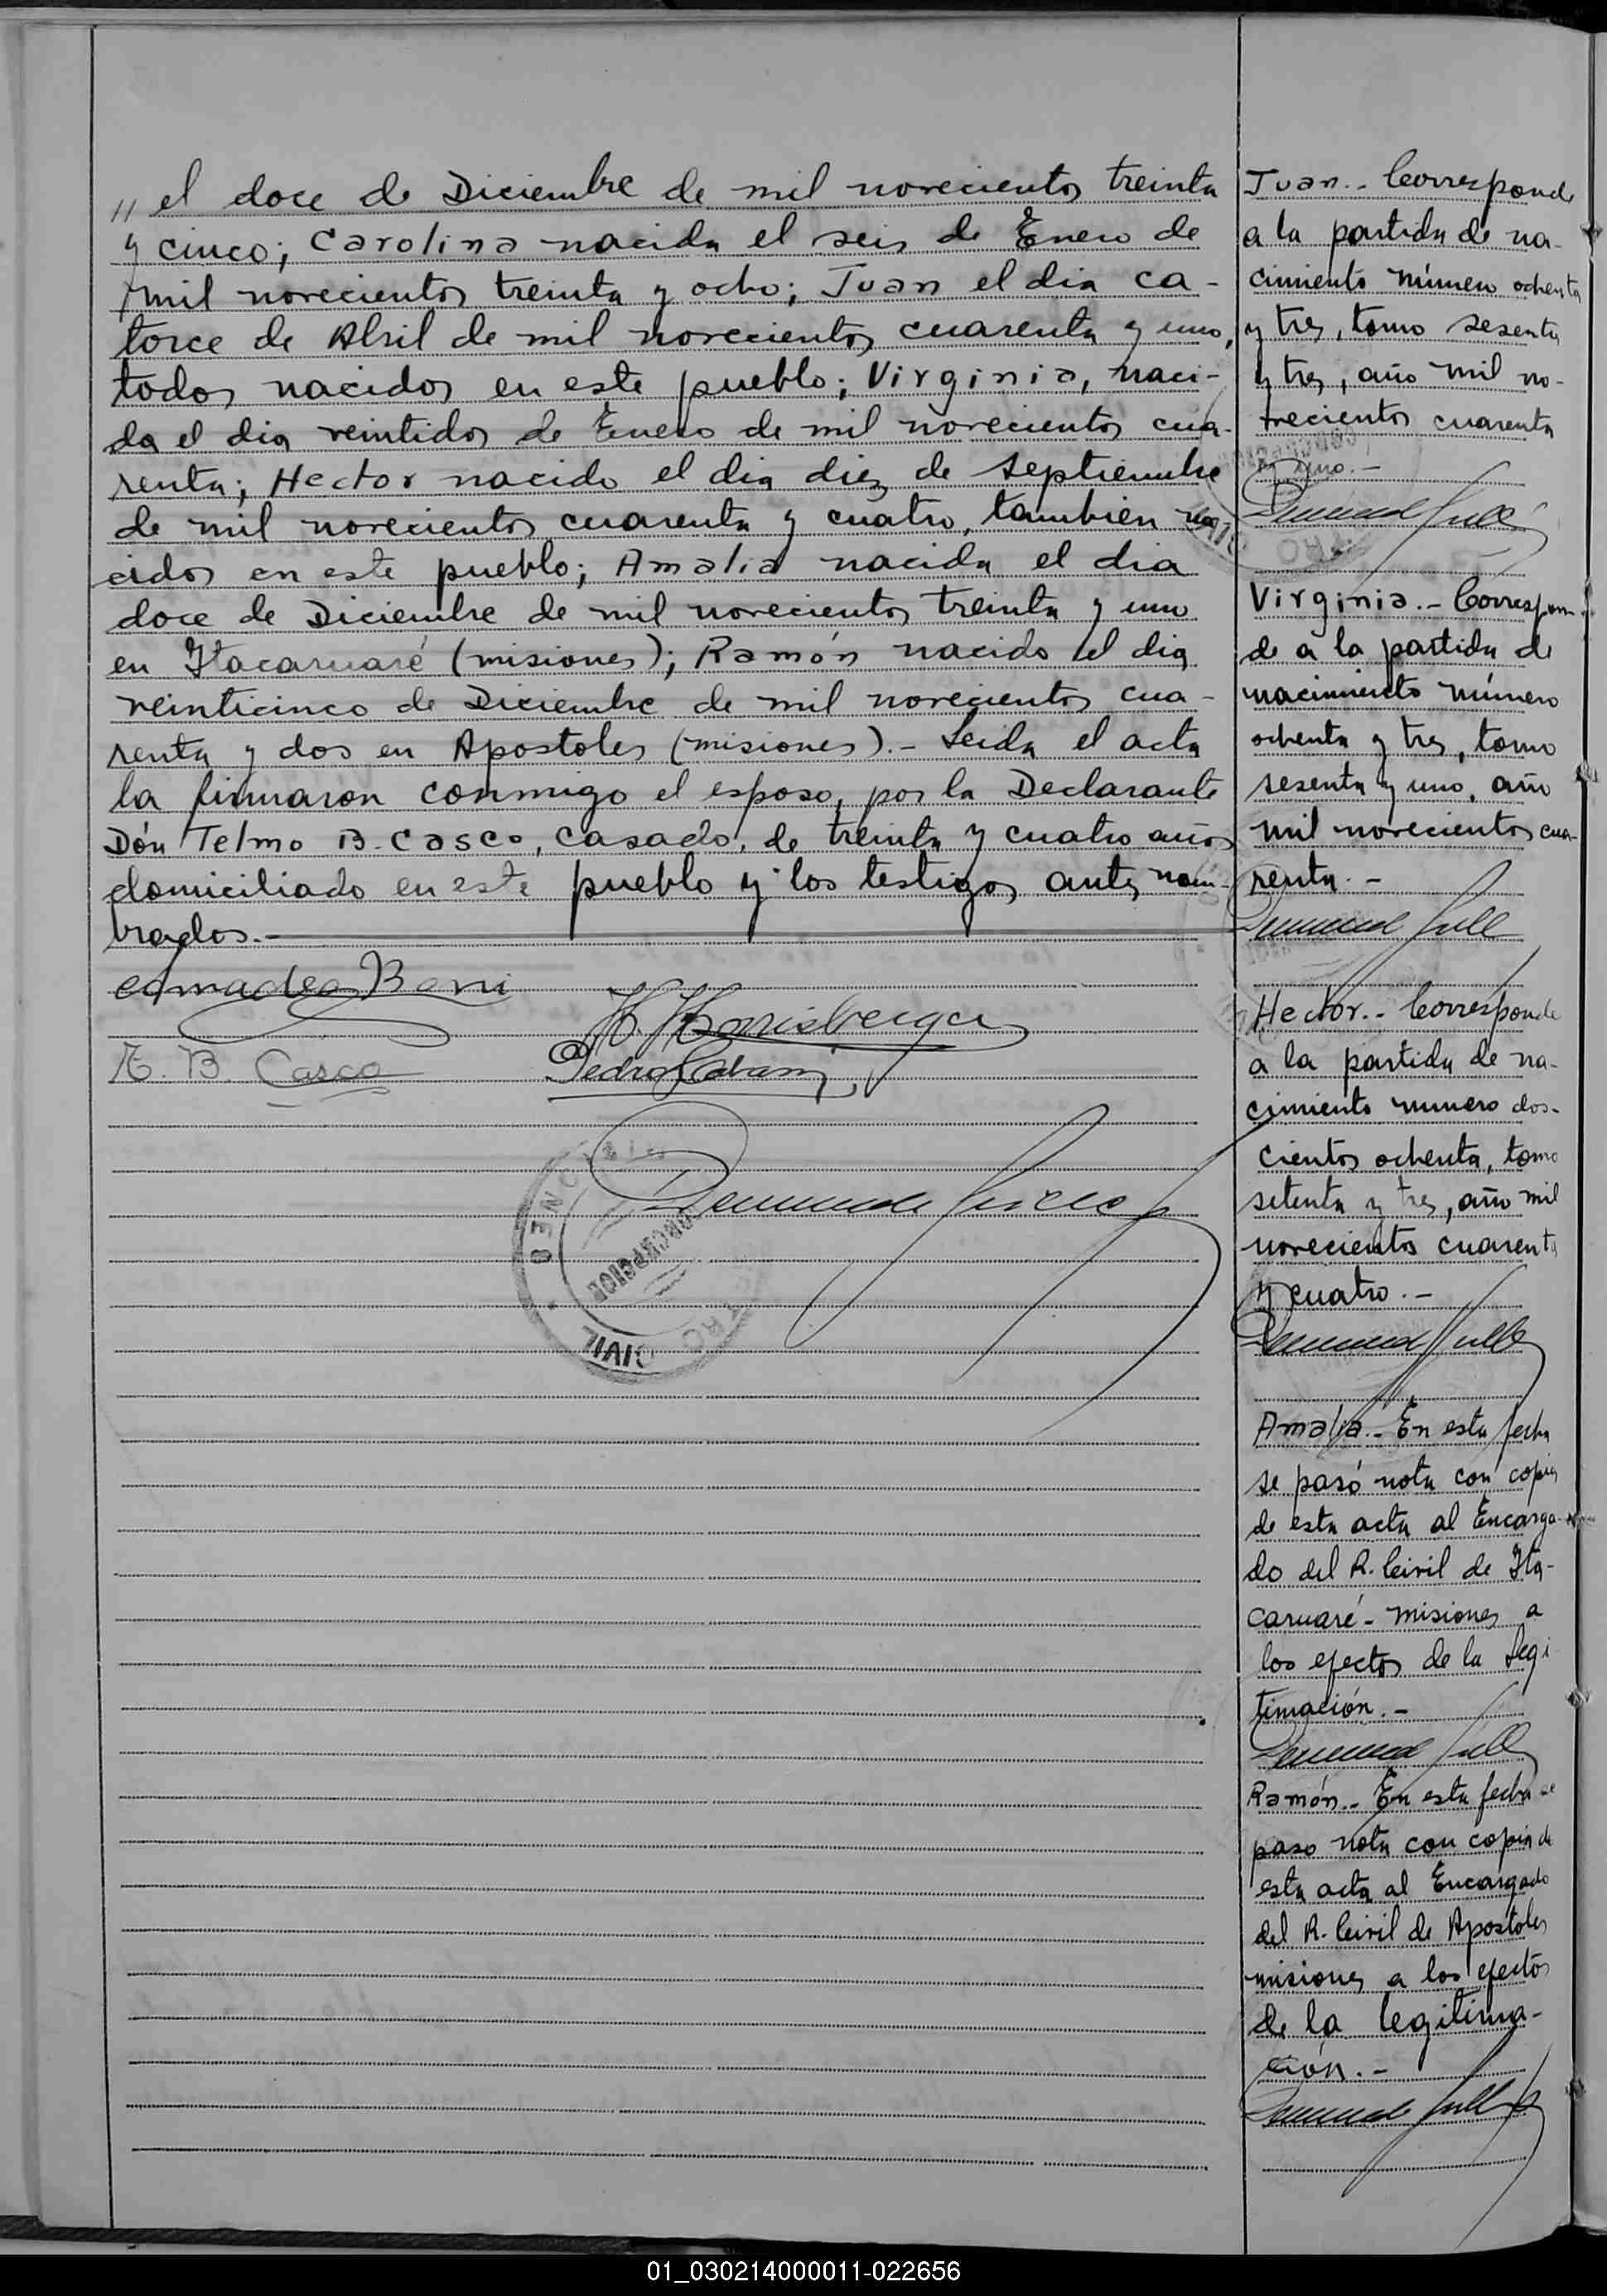 " el doce de Diciembre de mil novecientos treinta
y cinco; Carolina nacida el seis de Enero de
mil novecientos treinta y ocho; Juan el dia ca-
torce de Abril de mil novecientos cuarenta y uno,
todos nacidos en este pueblo; Virginia, naci-
da el dia veintidos de Enero de mil novecientos cua-
renta; Hector nacido el dia diez de Septiembre
de mil novecientos cuarenta y cuatro, tambien na
cidos en este pueblo; Amalia nacida el dia
doce de Diciembre de mil novecientos treinta y uno
en Itacaruaré (misiones); Ramón nacido el dia
veinticinco de Diciembre de mil novecientos cua-
renta y dos en Apostoles (misiones).- Leida el acta
la firmaron conmigo el esposo, por la Declarante
Dón Telmo B. Casco, casado, de treinta y cuatro años
domiciliado en este pueblo y los testigos antes nom-
brados.-
Amadeo
T. B. Casco
Pedro
REGISTRO CIVIL
Juan.- Corresponde
a la partida de na-
cimiento número ochenta
y tres, tomo sesenta
y tres, año mil no-
vecientos cuarenta
y uno.-
Virginia.- Correspon-
de a la partida de
nacimiento número
ochenta y tres, tomo
sesenta y uno, año
mil novecientos cua-
renta.-
Hector.- Corresponde
a la partida de na-
cimiento numero dos-
cientos ochenta, tomo
setenta y tres, año mil
novecientos cuarenta
y cuatro.-
Amalia.- En esta fecha
se pasó nota con copia
de esta acta al Encarga-
do del R. Civil de Ita-
caruaré - misiones a
los efectos de la Legi
timación.-
Ramón.- En esta fecha se
paso nota con copia de
esta acta al Encargado
del R. Civil de Apostoles
misiones a los efectos
de la legitima-
ción.-
01_030214000011-022656